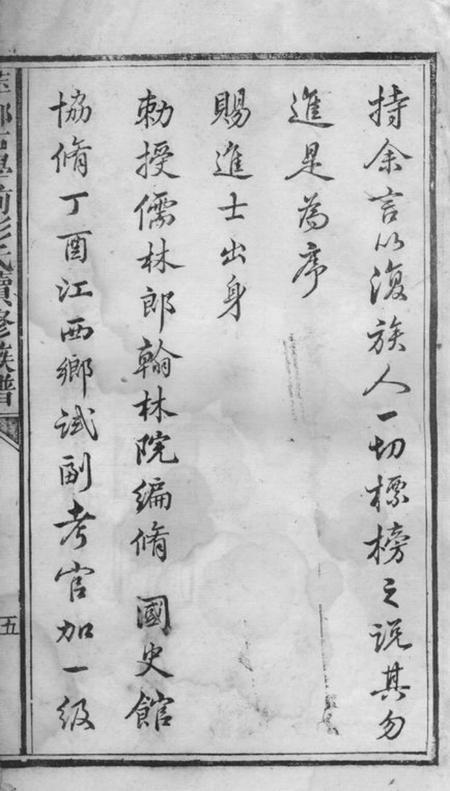 持余言以復族人一切標榜之說其勿
進是為序
賜進士出身
勅授儒林郎翰林院編脩 國史館
協脩丁酉江西鄉試副考官加一級
彭氏續修族譜
五